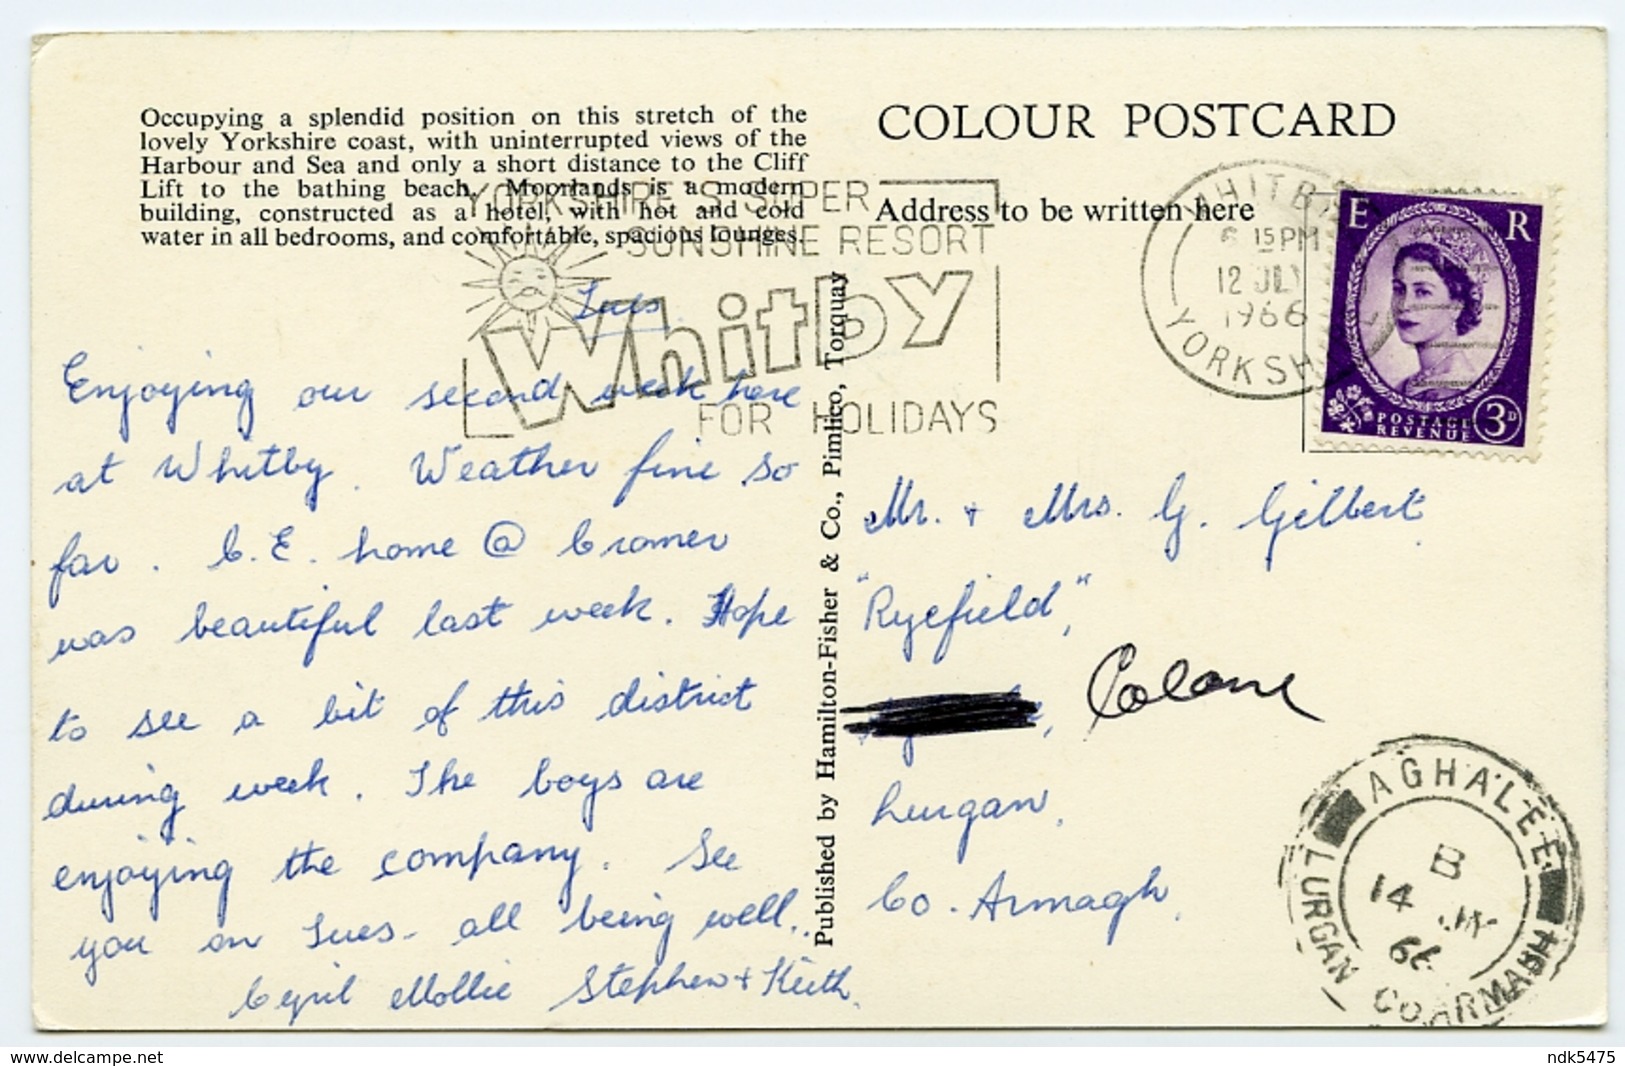 Occupying a splendid position on this stretch of the
lovely Yorkshire coast, with uninterrupted views of the
Harbour and Sea and only a short distance to the Cliff
Lift to the bathing beach, Moorlands is a modern
building, constructed as a hotel, with hot and cold
water in all bedrooms, and comfortable, spacious lounges.
YORKSHIRE'S SUPER
SUNSHINE RESORT
Whitby
FOR HOLIDAYS
Tues
Enjoying our second week here
at Whitby. Weather fine so
far. C.E. home @ Cromer
was beautiful last week. Hope
to see a bit of this district
during week. The boys are
enjoying the company. See
you on Tues - all being well..
Cyril Mollie Stephen + Keith.
Published by Hamilton-Fisher & Co., Pimlico, Torquay
COLOUR POSTCARD
Address to be written here
WHITBY
15 PM
12 JLY
1966
YORKSH
E R
POSTAGE
REVENUE
3D
Mr. + Mrs. G. Gilbert
"Ryefield",
Colane
Lurgan,
Co. Armagh,
AGHALEE
B
14 JY
66
LURGAN CO. ARMAGH
ndk5475
www.delcampe.net